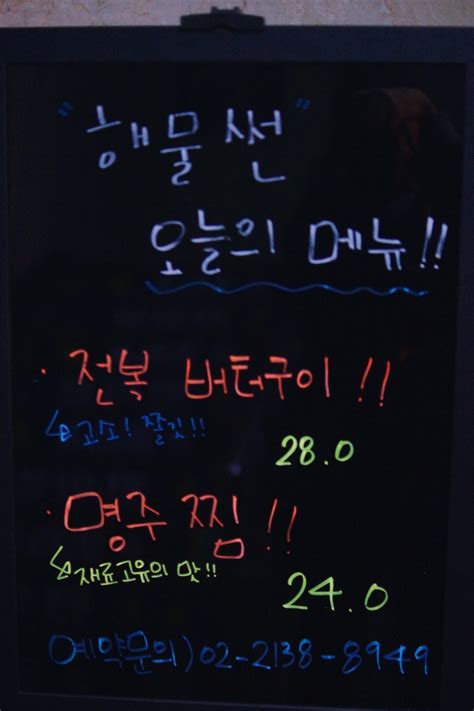 "해물썬"
오늘의 메뉴!!
· 전복 버터구이!!
↳고소! 쫄깃!!
28.0
· 명주찜!!
↳재료고유의 맛!!
24.0
예약문의) 02-2138-8949